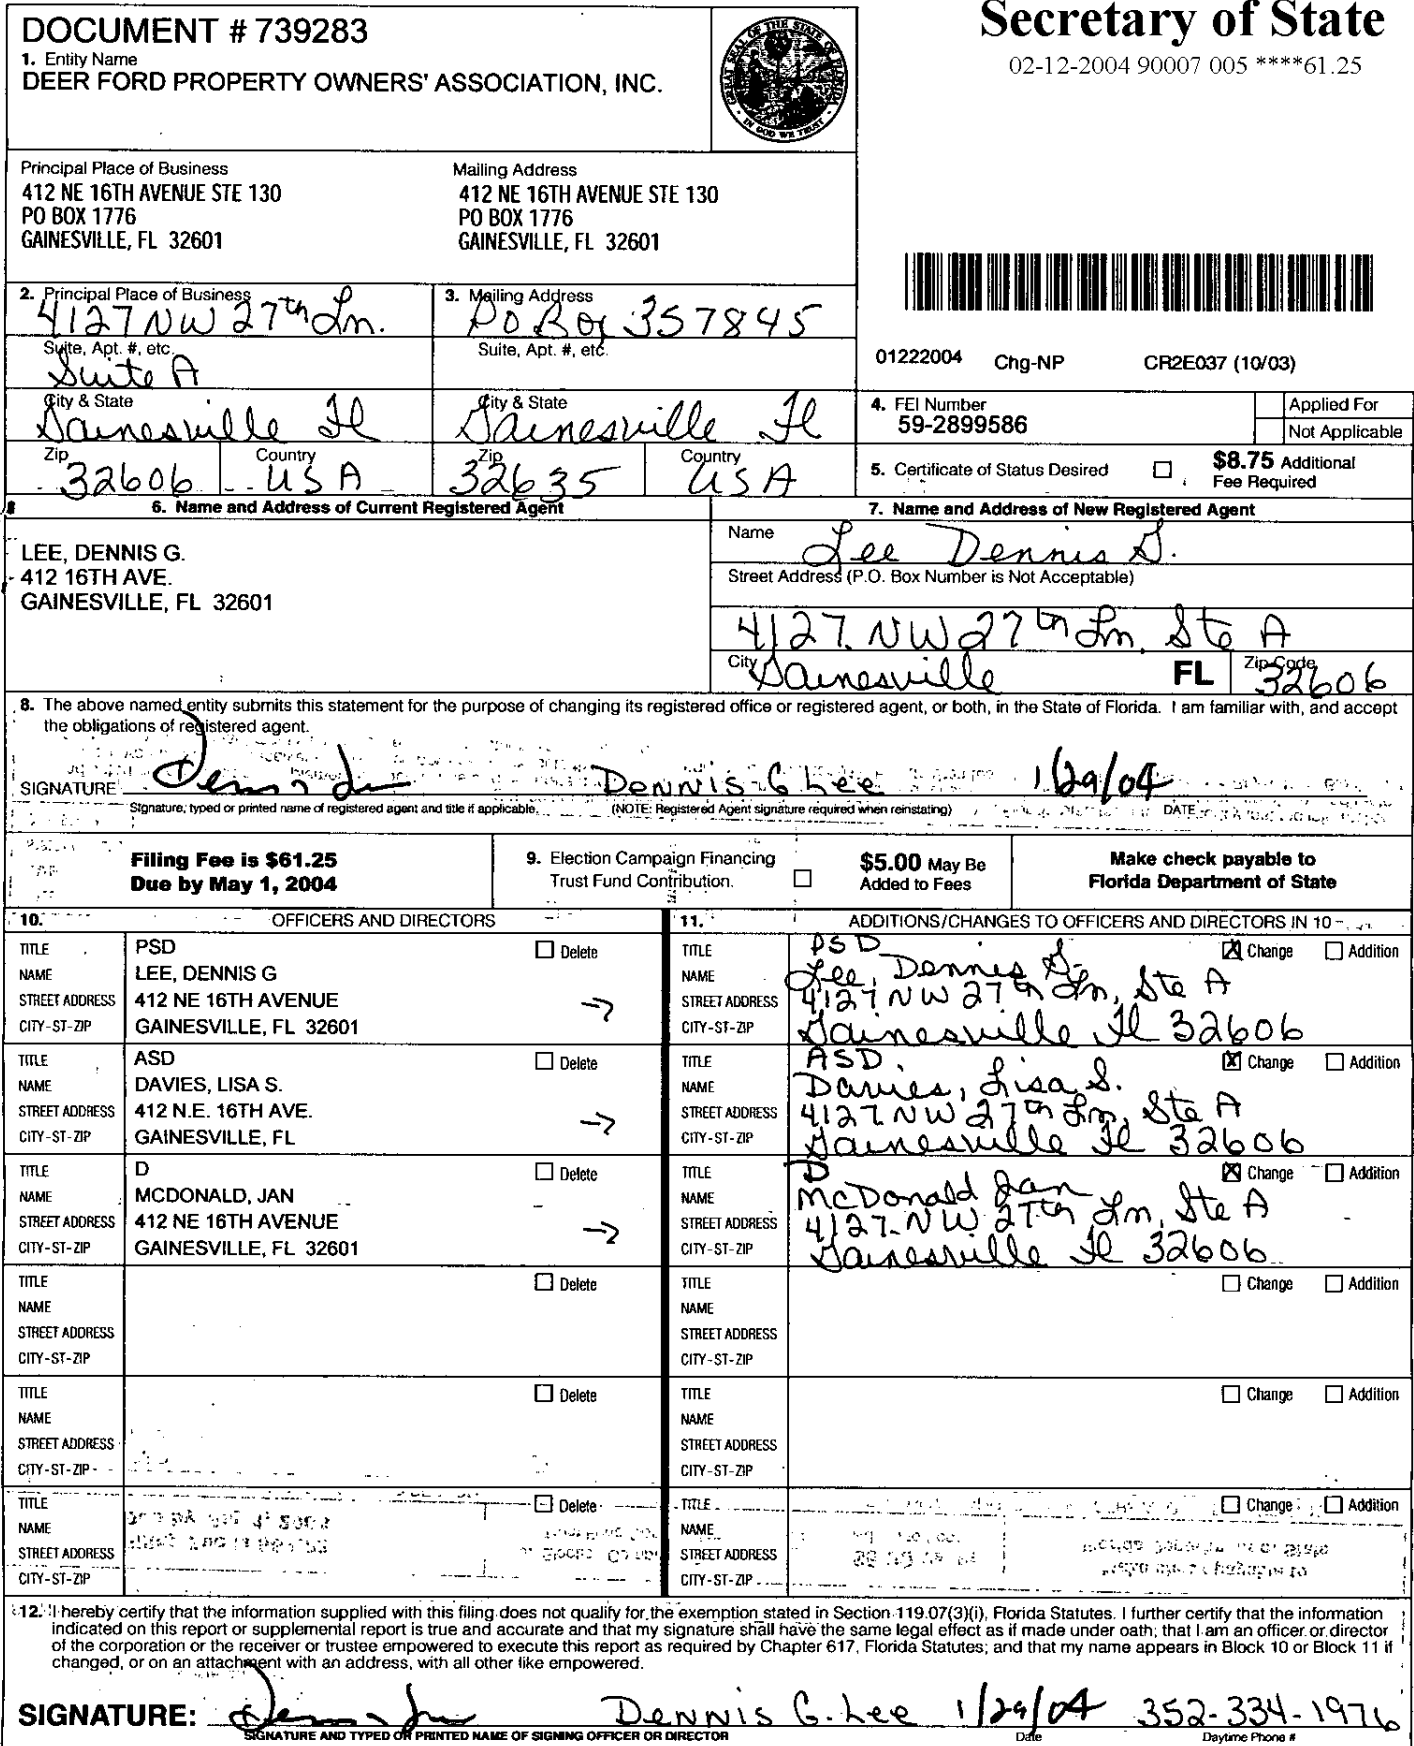 Secretary of State
02-12-2004 90007 005 ****61.25
DOCUMENT # 739283
1. Entity Name
DEER FORD PROPERTY OWNERS' ASSOCIATION, INC.
GREAT SEAL OF THE STATE OF FLORIDA
IN GOD WE TRUST
Principal Place of Business
412 NE 16TH AVENUE STE 130
PO BOX 1776
GAINESVILLE, FL 32601
Mailing Address
412 NE 16TH AVENUE STE 130
PO BOX 1776
GAINESVILLE, FL 32601
2. Principal Place of Business
4127 NW 27th Ln.
Suite, Apt. #, etc.
Suite A
City & State
Gainesville Fl
Zip
32606
Country
USA
3. Mailing Address
PO Box 357845
Suite, Apt. #, etc.
City & State
Gainesville Fl
Zip
32635
Country
USA
01222004 Chg-NP CR2E037 (10/03)
4. FEI Number
59-2899586
Applied For
Not Applicable
5. Certificate of Status Desired
$8.75 Additional
Fee Required
6. Name and Address of Current Registered Agent
LEE, DENNIS G.
412 16TH AVE.
GAINESVILLE, FL 32601
7. Name and Address of New Registered Agent
Name
Lee Dennis G.
Street Address (P.O. Box Number is Not Acceptable)
4127 NW 27th Ln, Ste A
City
Gainesville
FL
Zip Code
32606
8. The above named entity submits this statement for the purpose of changing its registered office or registered agent, or both, in the State of Florida. I am familiar with, and accept
the obligations of registered agent.
SIGNATURE Dennis G Lee 1/29/04
Signature, typed or printed name of registered agent and title if applicable. (NOTE: Registered Agent signature required when reinstating) DATE
Filing Fee is $61.25
Due by May 1, 2004
9. Election Campaign Financing
Trust Fund Contribution.
$5.00 May Be
Added to Fees
Make check payable to
Florida Department of State
10. OFFICERS AND DIRECTORS
11. ADDITIONS/CHANGES TO OFFICERS AND DIRECTORS IN 10
TITLE PSD Delete
NAME LEE, DENNIS G
STREET ADDRESS 412 NE 16TH AVENUE
CITY-ST-ZIP GAINESVILLE, FL 32601
TITLE PSD X Change Addition
NAME Lee, Dennis G.
STREET ADDRESS 4127 NW 27th Ln, Ste A
CITY-ST-ZIP Gainesville Fl 32606
TITLE ASD Delete
NAME DAVIES, LISA S.
STREET ADDRESS 412 N.E. 16TH AVE.
CITY-ST-ZIP GAINESVILLE, FL
TITLE ASD X Change Addition
NAME Davies, Lisa S.
STREET ADDRESS 4127 NW 27th Ln, Ste A
CITY-ST-ZIP Gainesville Fl 32606
TITLE D Delete
NAME MCDONALD, JAN
STREET ADDRESS 412 NE 16TH AVENUE
CITY-ST-ZIP GAINESVILLE, FL 32601
TITLE D X Change Addition
NAME McDonald Jan
STREET ADDRESS 4127 NW 27th Ln, Ste A
CITY-ST-ZIP Gainesville Fl 32606
TITLE Delete
NAME
STREET ADDRESS
CITY-ST-ZIP
TITLE Change Addition
NAME
STREET ADDRESS
CITY-ST-ZIP
TITLE Delete
NAME
STREET ADDRESS
CITY-ST-ZIP
TITLE Change Addition
NAME
STREET ADDRESS
CITY-ST-ZIP
TITLE Delete
NAME
STREET ADDRESS
CITY-ST-ZIP
TITLE Change Addition
NAME
STREET ADDRESS
CITY-ST-ZIP
12. I hereby certify that the information supplied with this filing does not qualify for the exemption stated in Section 119.07(3)(i), Florida Statutes. I further certify that the information
indicated on this report or supplemental report is true and accurate and that my signature shall have the same legal effect as if made under oath; that I am an officer or director
of the corporation or the receiver or trustee empowered to execute this report as required by Chapter 617, Florida Statutes; and that my name appears in Block 10 or Block 11 if
changed, or on an attachment with an address, with all other like empowered.
SIGNATURE: Dennis G. Lee 1/29/04 352-334-1976
SIGNATURE AND TYPED OR PRINTED NAME OF SIGNING OFFICER OR DIRECTOR Date Daytime Phone #